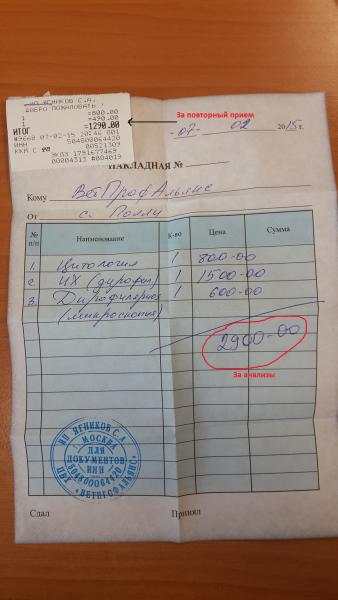 ИП ЯГНИКОВ С.А.
ДОБРО ПОЖАЛОВАТЬ
1 =800.00
1 =490.00
ИТОГ =1290.00
№9668 07-02-15 20:46 001
ИНН 504800064420
00521309
ККМ С
ЭКЛЗ 1791677469
00004313 #004019
За повторный прием
-07- 02 2015г.
НАКЛАДНАЯ №
Кому ВетПрофАльянс
От с. Полли
№ п/п Наименование К-во Цена Сумма
1. Цитология 1 800-00
2. ИХ (дирофил) 1 1500-00
3. Дирофиляриоз 1 600-00
(микроскопия)
2900-00
За анализы
ИП ЯГНИКОВ С.А.
МОСКВА
ДЛЯ
ДОКУМЕНТОВ
ИНН
504800064420
ЦВТ "ВЕТПРОФАЛЬЯНС"
Сдал Принял